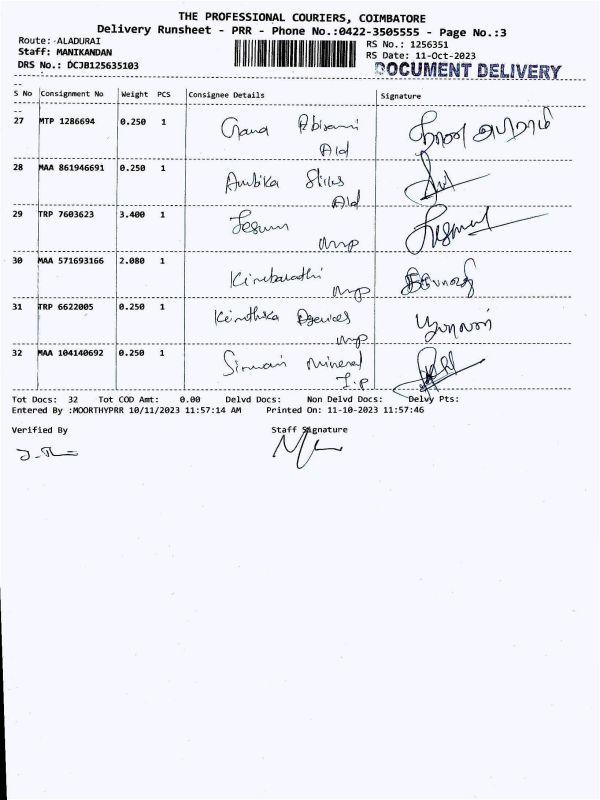 THE PROFESSIONAL COURIERS, COIMBATORE
Delivery Runsheet - PRR - Phone No.:0422-3505555 - Page No.:3
Route: ALADURAI
RS No.: 1256351
Staff: MANIKANDAN
RS Date: 11-Oct-2023
DRS No.: DCJB125635103
DOCUMENT DELIVERY
S No Consignment No Weight PCS Consignee Details Signature
27 MTP 1286694 0.250 1
Ald
28 MAA 861946691 0.250 1 Ambika
Ald
29 TRP 7603623 3.400 1
mp
30 MAA 571693166 2.080 1
mp
31 TRP 6622005 0.250 1
mp
32 MAA 104140692 0.250 1 mineral
I.p
Tot Docs: 32 Tot COD Amt: 0.00 Delvd Docs: Non Delvd Docs: Delvy Pts:
Entered By :MOORTHYPRR 10/11/2023 11:57:14 AM Printed On: 11-10-2023 11:57:46
Verified By Staff Signature